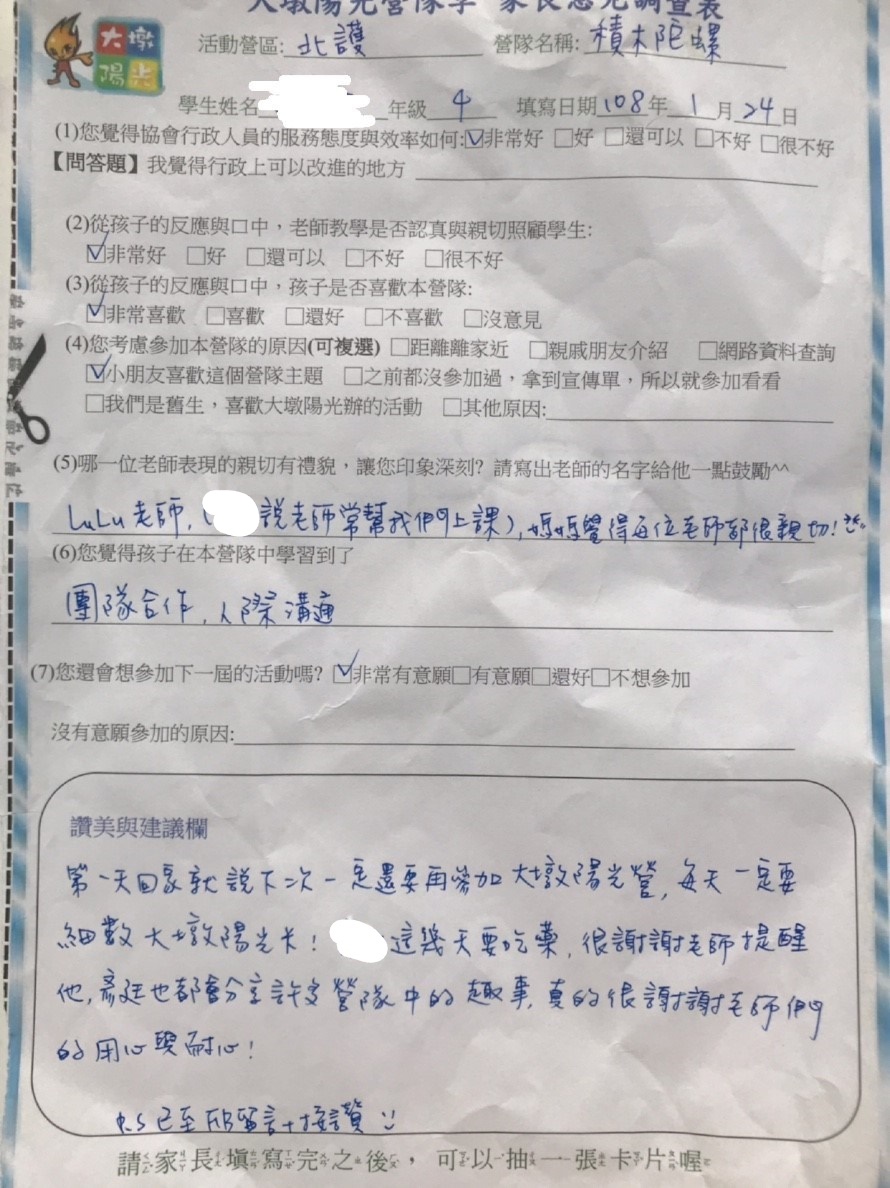 大墩陽光營隊季 家長意見調查表
大墩
陽光
活動營區: 北護 營隊名稱: 積木陀螺
學生姓名 年級 4 填寫日期 108 年 1 月 24 日
(1)您覺得協會行政人員的服務態度與效率如何:☑非常好 □好 □還可以 □不好 □很不好
【問答題】我覺得行政上可以改進的地方
(2)從孩子的反應與口中，老師教學是否認真與親切照顧學生:
☑非常好 □好 □還可以 □不好 □很不好
(3)從孩子的反應與口中，孩子是否喜歡本營隊:
☑非常喜歡 □喜歡 □還好 □不喜歡 □沒意見
(4)您考慮參加本營隊的原因(可複選) □距離離家近 □親戚朋友介紹 □網路資料查詢
☑小朋友喜歡這個營隊主題 □之前都沒參加過，拿到宣傳單，所以就參加看看
□我們是舊生，喜歡大墩陽光辦的活動 □其他原因:
(5)哪一位老師表現的親切有禮貌，讓您印象深刻? 請寫出老師的名字給他一點鼓勵^^
LuLu 老師, ( 說老師常幫我們上課), 媽媽覺得每位老師都很親切!
(6)您覺得孩子在本營隊中學習到了
團隊合作, 人際溝通
(7)您還會想參加下一屆的活動嗎? ☑非常有意願□有意願□還好□不想參加
沒有意願參加的原因:
讚美與建議欄
第一天回家就說下次一定還要再參加大墩陽光營, 每天一定要
細數大墩陽光卡! 這幾天要吃藥, 很謝謝老師提醒
他, 彥廷也都會分享許多營隊中的趣事, 真的很謝謝老師們
的用心與耐心!
P.S 已至FB留言+按讚 :)
請家長填寫完之後，可以抽一張卡片喔